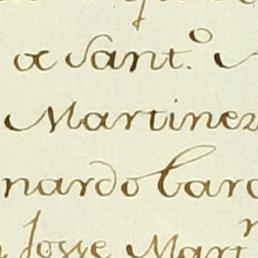 a Sant.º
Martinez
nardo Garc
Josse Mart